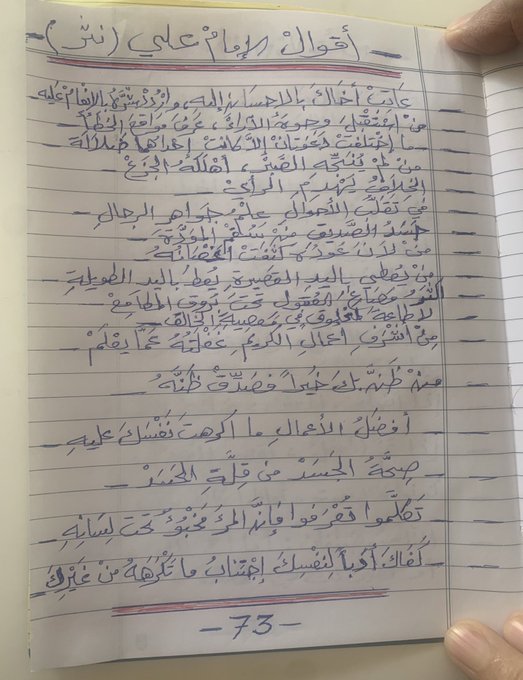 أقوال الإمام علي (نثر)
عاتِبْ أخاكَ بالإحسانِ إليه، وارْدُدْ شرَّهُ بالإنعامِ عليه
مَنْ اسْتَقْبَلَ وجوهَ الآراءْ، عَرَفَ مواقعَ الخطأْ
ما اختلفتْ دَعْوَتانْ إلاَّ كانت إحداهما ضلالة
مَنْ لمْ يُنْجِهِ الصَّبْرُ، أهْلَكَهُ الجَزَعْ
الخِلافُ يَهْدِمُ الرأيْ
في تَقَلُّبِ الأحوالِ عِلْمُ جواهرِ الرجالِ
حَسَدُ الصَّديقِ مِنْ سَقَمِ المَوَدَّةِ
مَنْ لانَ عُودُهُ كَثُفَتْ أغْصانُهُ
مَنْ يُعْطِي باليدِ القصيرةِ يُعْطَ باليدِ الطويلةِ
أكثرُ مصارعِ العُقولِ تحتَ بروقِ المطامِعْ
لا طاعةَ لمخلوقٍ في معصيةِ الخالقْ
مِنْ أشْرَفِ أعمالِ الكريمِ غَفْلَتُهُ عمَّا يَعْلَمْ
مَنْ ظَنَّ بكَ خَيراً فَصَدِّقْ ظَنَّهُ
أفضَلُ الأعمالِ ما أكرهتَ نَفْسَكَ عليهِ
صِحَّةُ الجَسَدْ من قِلَّةِ الحَسَدْ
تَكلَّموا تُعْرَفوا فإنَّ المرءَ مَخْبُوءٌ تحتَ لِسانِهِ
كَفاكَ أدَباً لِنَفْسِكَ إجْتِنابُ ما تَكْرَهَهُ مِنْ غَيْرِكَ
-73-